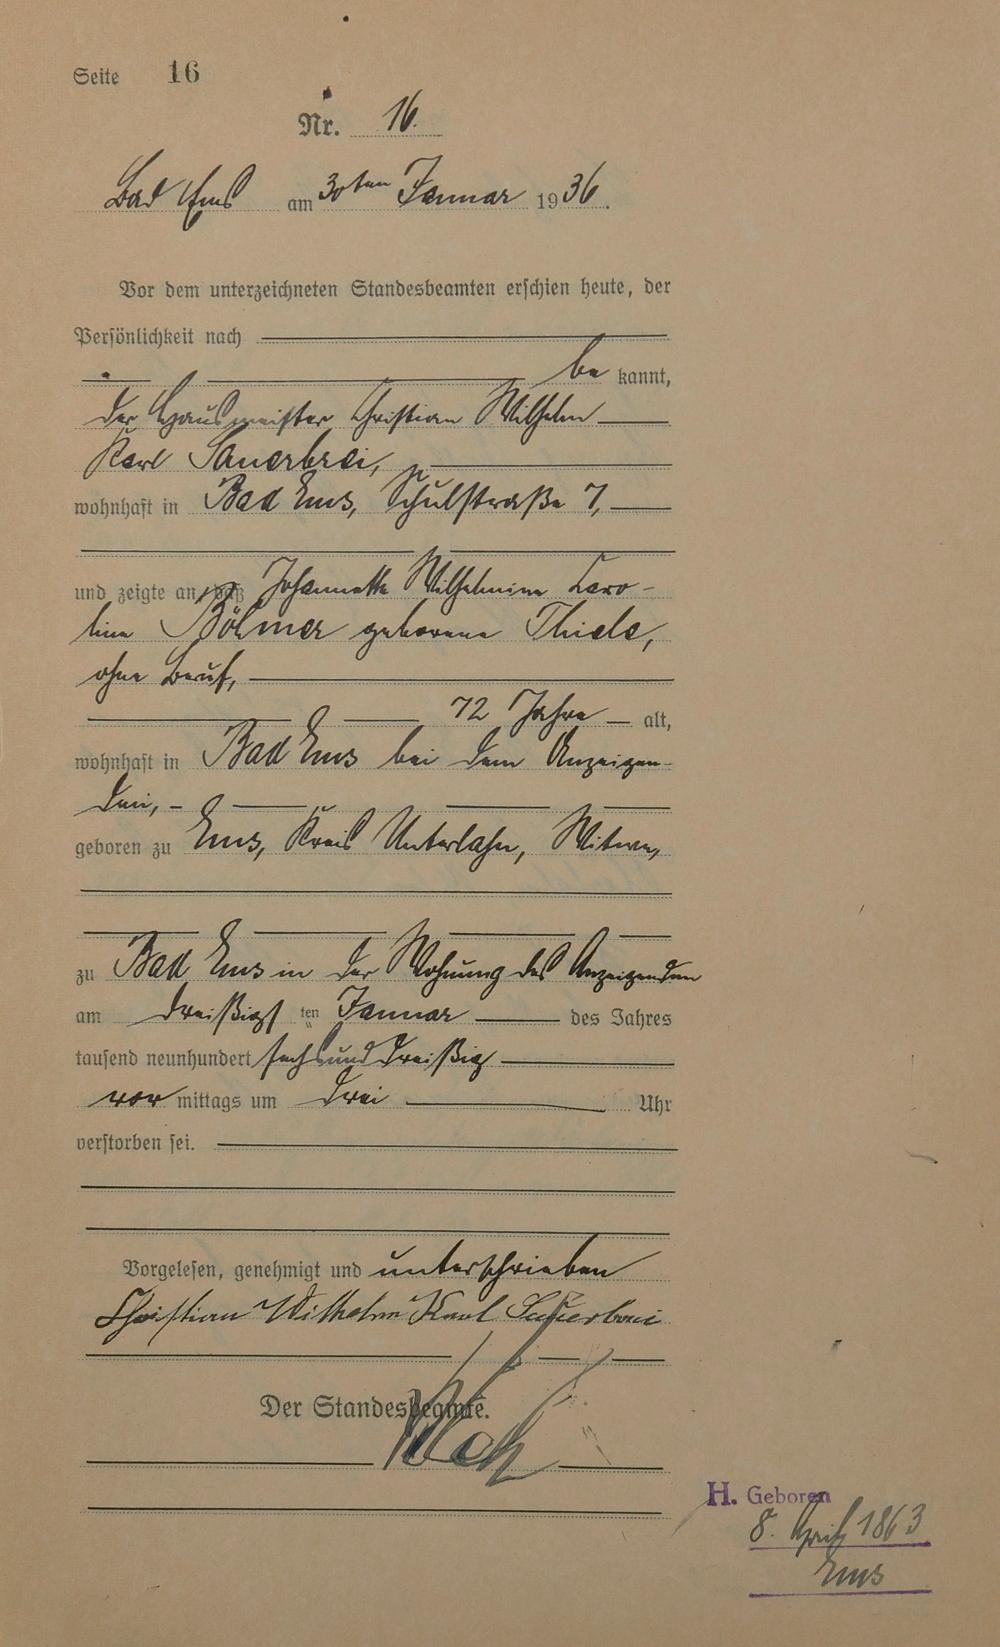 Seite 16
Nr. 16.
Bad Ems am 30ten Januar 1936.
Vor dem unterzeichneten Standesbeamten erschien heute, der
Persönlichkeit nach
be kannt,
der Hausmeister Christian Wilhelm
Karl Sauerbrei,
wohnhaft in Bad Ems, Schulstraße 7,
und zeigte an, daß Johannette Wilhelmine Caro-
line Böhmer geborene Thiele,
ohne Beruf,
72 Jahre alt,
wohnhaft in Bad Ems bei dem Anzeigen-
den,
geboren zu Ems, Kreis Unterlahn, Witwe,
zu Bad Ems in der Wohnung des Anzeigenden
am dreißigsten Januar des Jahres
tausend neunhundert sechsunddreißig
vor mittags um drei Uhr
verstorben sei.
Vorgelesen, genehmigt und unterschrieben
Christian Wilhelm Karl Sauerbrei
Der Standesbeamte.
H. Geboren
8. April 1863
Ems